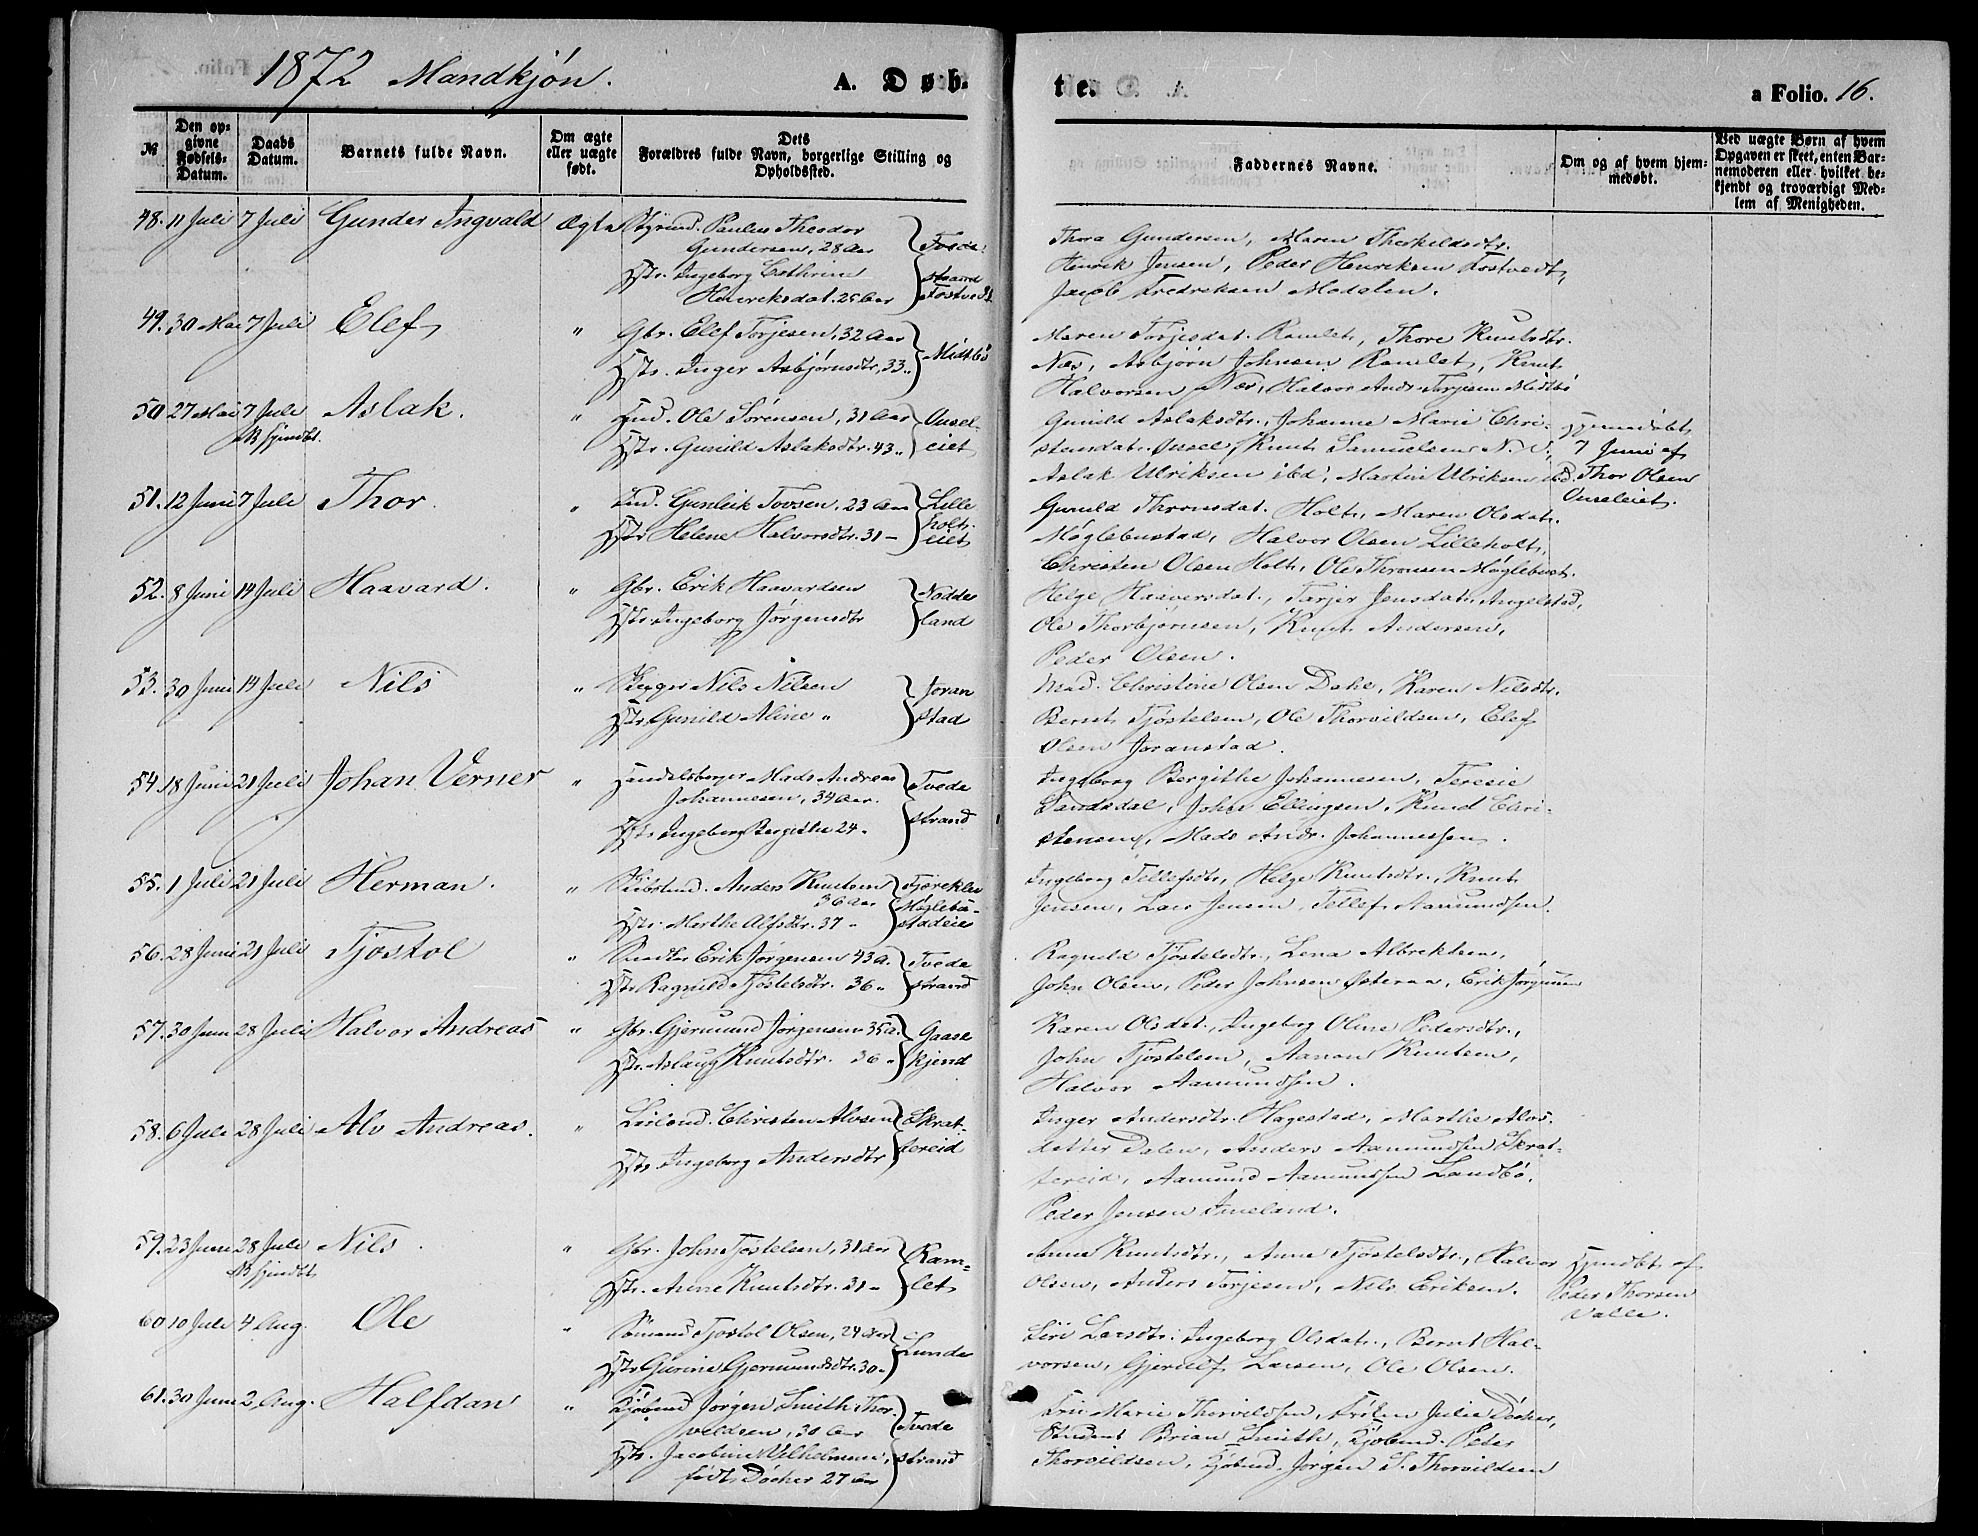 1872 Mandkjón.
A. Døb-
te.
a Folio. 16.
№
Den op-
givne
Fødsels-
Datum.
Daabs
Datum.
Barnets fulde Navn.
Om ægte
eller uægte
født.
Dets
Forældres fulde Navn, borgerlige Stilling og
Opholdssted.
Faddernes Navne.
Om og af hvem hjem-
medøbt.
Ved uægte Børn af hvem
Opgaven er skeet, enten Bar-
nemoderen eller hvilket be-
kjendt og troværdigt Med-
lem af Menigheden.
48. 11 Juli 7 Juli Gunder Ingvald Ægte Styrmd. Paulus Theodor
Gundersen, 28 Aar
Hstr. Ingeborg Cathrine
Henriksdat. 26 Aar
Tvede
strand
Fostvedt
Thora Gundersen, Maren Therkildsdtr.
Henrik Jensen, Peder Henriksen Fostvedt,
Jacob Fredreksen Modalen.
49. 30 Mai 7 Juli Elef " Gbr. Elef Torjesen, 32 Aar
Hstr. Inger Asbjørnsdtr, 33 "
Midtbö
Maren Torjesdat. Ramlet, Thore Knutsdtr.
Næs, Asbjørn Johnsen Ramlet, Knut
Halvorsen Næs, Halvor Andr. Torjesen Midtbö
50 27 Mai 7 Juli Aslak. " Ind. Ole Sörensen, 31 Aar
NB hjmdbt.
Hstr. Gunild Aslaksdtr. 43 "
Ousel-
eiet
Gunild Aslaksdtr., Johanne Marie Chri-
stensdat. Ousel, Knut Samuelsen N. S.,
Aslak Ulriksen ibd; Martin Ulriksen ibd.
Hjemmedöbt
7 Juni af
Thor Olsen
Ouseleiet.
51. 12 Juni 7 Juli Thor. " Ind. Gunleik Tovsen, 23 Aar
Hstr Helene Halvorsdtr. 31 -
Lille
holt-
eiet
Gunild Thronsdat. Holt, Maren Olsdat.
Møglebustad, Halvor Olsen Lilleholt,
Christen Olsen Holt, Ole Thronsen Møglebust.
52. 8 Juni 14 Juli Haavard. " Gbr. Erik Haavardsen
Hstr Ingeborg Jørgensdtr
Nodde
land
Helge Haaversdat., Tarjer Jensdat. Angelstad,
Ole Thorbjørnsen, Knut Andersen,
Peder Olsen.
53. 30 Juni 14 Juli Nils " Nils Nilsen
Hstr Gunild Aline "
Joran
stad
Mad. Christine Olsen Dahl, Karen Nilsdtr.
Bernt Tjöstelsen, Ole Thorvildsen, Elef
Olsen Joranstad.
54. 18 Juni 21 Juli Johan Verner " Handelsborger Mads Andreas
Johannesen, 34 Aar.
Hstr Ingeborg Bergithe 24 "
Tvede
strand
Ingeborg Bergithe Johannesen, Teresie
Sandsdal, John Ellingsen, Knud Chri-
stensen, Mads Andr. Johannessen.
55. 1 Juli 21 Juli Herman. " Anders Knutsen
36 Aar
Hstr. Marthe Alfsdtr. 37 "
Møglebu-
stadeiet
Ingeborg Tellefsdtr, Helge Knutsdtr., Knut
Jensen, Lars Jensen, Tellef Aamundsen.
56. 28 Juni 21 Juli Tjöstol " Erik Jørgensen 43 A.
Hstr Ragnild Tjöstelsdtr. 36 "
Tvede
strand
Ragnild Tjöstelsdtr., Lena Albrektsen,
John Olsen, Peder Johnsen Østeraa, Erik Jørgensen
57. 30 Juni 28 Juli Halvor Andreas " Gbr. Gjermund Jørgensen 35 a.
Hstr. Aslaug Knutsdtr. 36 "
Gaase
kjend
Karen Olsdat., Ingeborg Oline Pedersdtr.,
John Tjöstelsen, Aanon Knutsen,
Halvor Aamundsen.
58. 6 Juli 28 Juli Alv Andreas. " Leilænd. Christen Alvsen
Hstr Ingeborg Andersdtr
Skrat-
tereid
Inger Andersdtr. Hagestad, Marthe Alvs-
datter Dalen, Anders Aamundsen Skrat-
tereid, Aamund Aamundsen Landbö,
Peder Jensen Imeland.
59. 23 Juni 28 Juli Nils. " Gbr. John Tjöstelsen, 31 Aar
NB hjmdbt
Hstr. Anne Knutsdtr. 31 -
Ram-
let
Anne Knutsdtr., Anne Tjöstelsdtr., Halvor
Olsen, Anders Torjesen, Nils Eriksen.
Hjmdbt. af
Peder Thorsen
Valle.
60 10 Juli 4 Aug. Ole " Sömand Tjöstol Olsen, 24 Aar
Hstr. Gurine Gjermundsdtr. 30 -
Lunde
Siri Larsdtr. Ingeborg Olsdat., Bernt Hal-
vorsen, Gjerulf Larsen, Ole Olsen.
61. 30 Juni 2 Aug. Halfdan " Kjöbmd Jørgen Smith Thor-
veldsen, 30 Aar
Hstr. Jacobine Vilhelmine,
født Döcker 27 Aar
Tvede
strand
Fru Marie Thorvildsen, Fröken Julie Döcker,
Student Brian Smith, Kjöbmd. Peder
Thorvildsen, Kjöbmd. Jörgen S. Thorvildsen